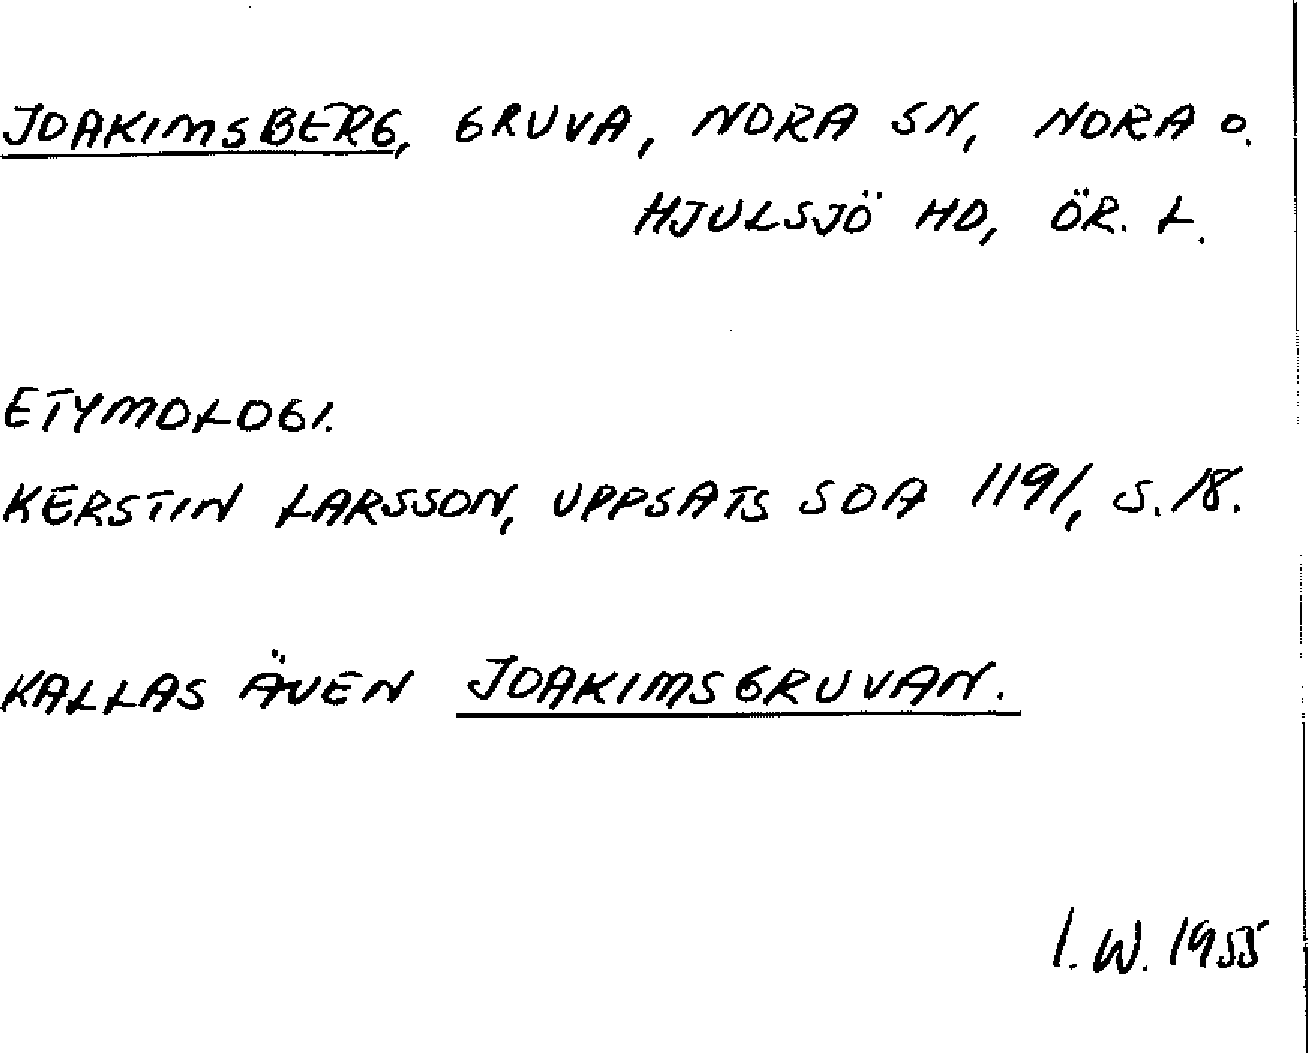 JOAKIMSBERG, GRUVA, NORA SN, NORA O.
HJULSJÖ HD, ÖR. L.
ETYMOLOGI.
KERSTIN LARSSON, UPPSATS SOA 1191, S. 18.
KALLAS ÄVEN JOAKIMSGRUVAN.
I. W. 1955